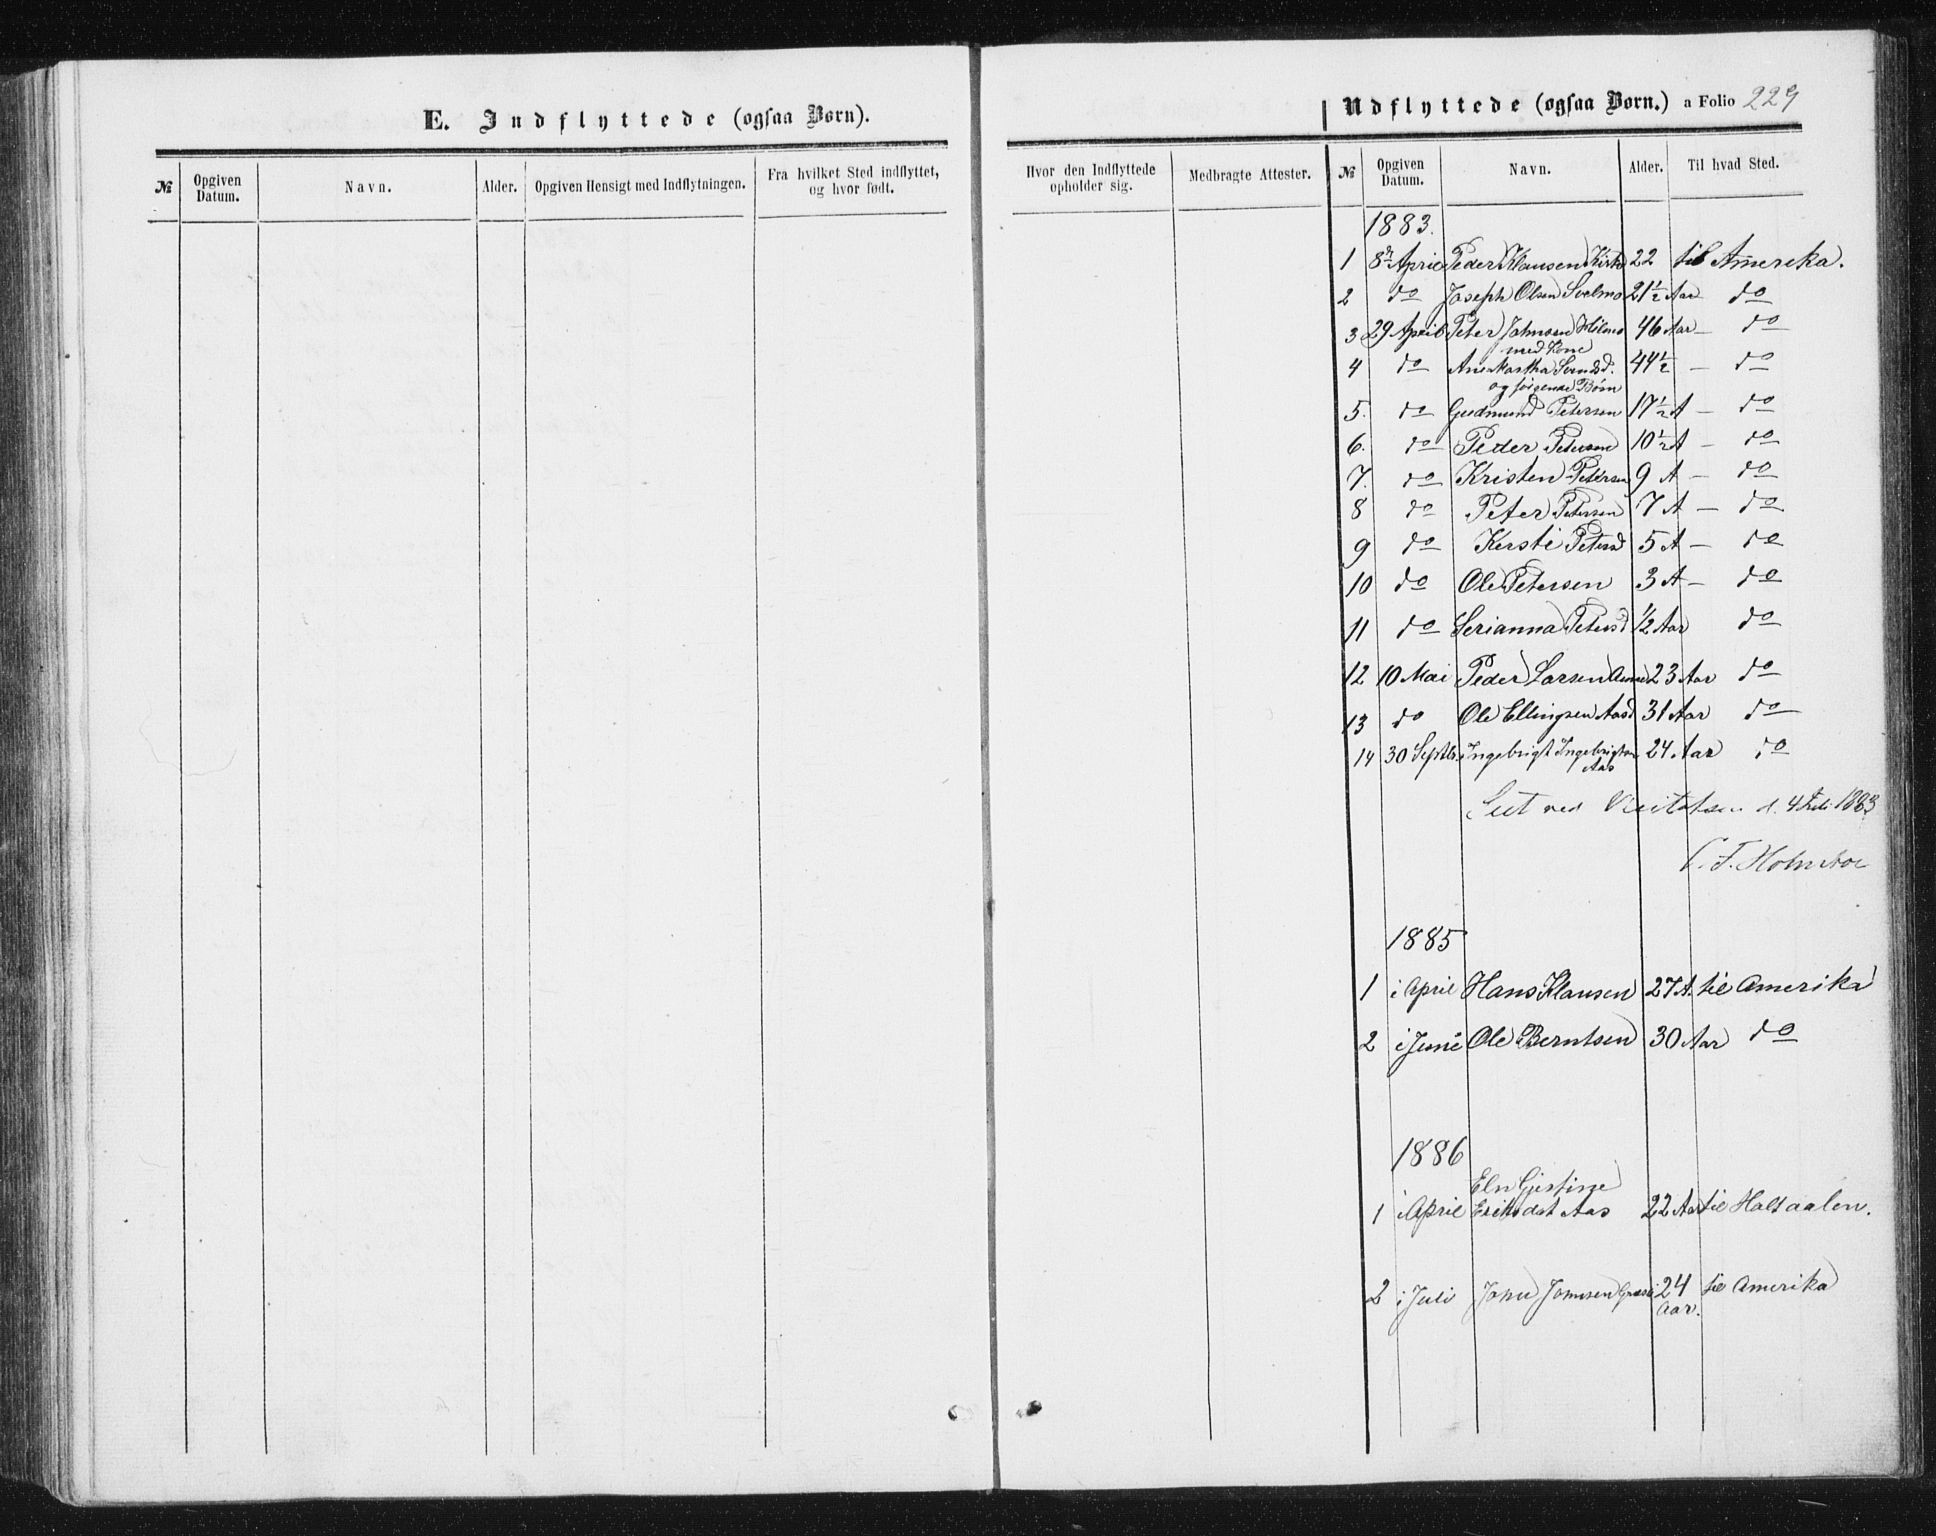 E. Indflyttede (ogsaa Børn).
№ Opgiven Datum. Navn. Alder. Opgiven Hensigt med Indflytningen. Fra hvilket Sted indflyttet, og hvor født.
Udflyttede (ogsaa Børn.) a Folio 229
Hvor den Indflyttede opholder sig. Medbragte Attester. № Opgiven Datum. Navn. Alder. Til hvad Sted.
1883.
1 8de April Peder Klausen 22 til Amerika.
2 do Joseph Olsen 21½ Aar do
3 29 April Peter Johnsen 46 Aar – do
med Kone
4 do Ane Martha 44½ – do
og følgende Børn
5. do Gudmund Petersen 17½ A – do
6. do Peder Petersen 10½ A – do
7. do Kristen Petersen 9 A – do
8 do Peter Petersen 7 A – do
9 do Kersti Petersd 5 A – do
10 do Ole Petersen 3 A – do
11 do Serianna Petersd ½ Aar do
12 10 Mai Peder Larsen 23 Aar do
13 do Ole Ellingsen 31 Aar do
14 30 Septbr. Ingebrigt Ingebrigtsen 24 Aar do
Aas
Seet ved Visitatsen d. 4 1883
1885
1 i April Hans Klausen 27 A. til Amerika
2 i Juni Ole Berntsen 30 Aar do
1886
1 i April Eriksdat Aas 22 Aar til Holtaalen.
2 i Juli John Johnsen 24 til Amerika
Aar.